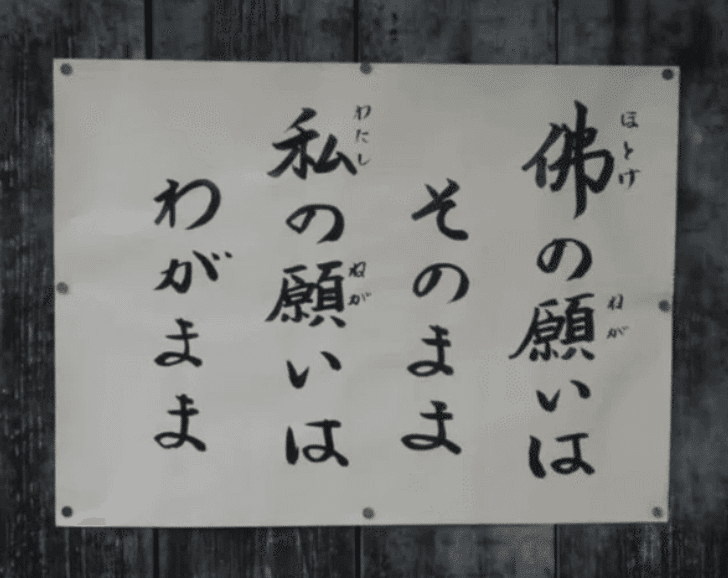 佛の願いは
ほとけ
ねが
そのまま
私の願いは
わたし
ねが
わがまま